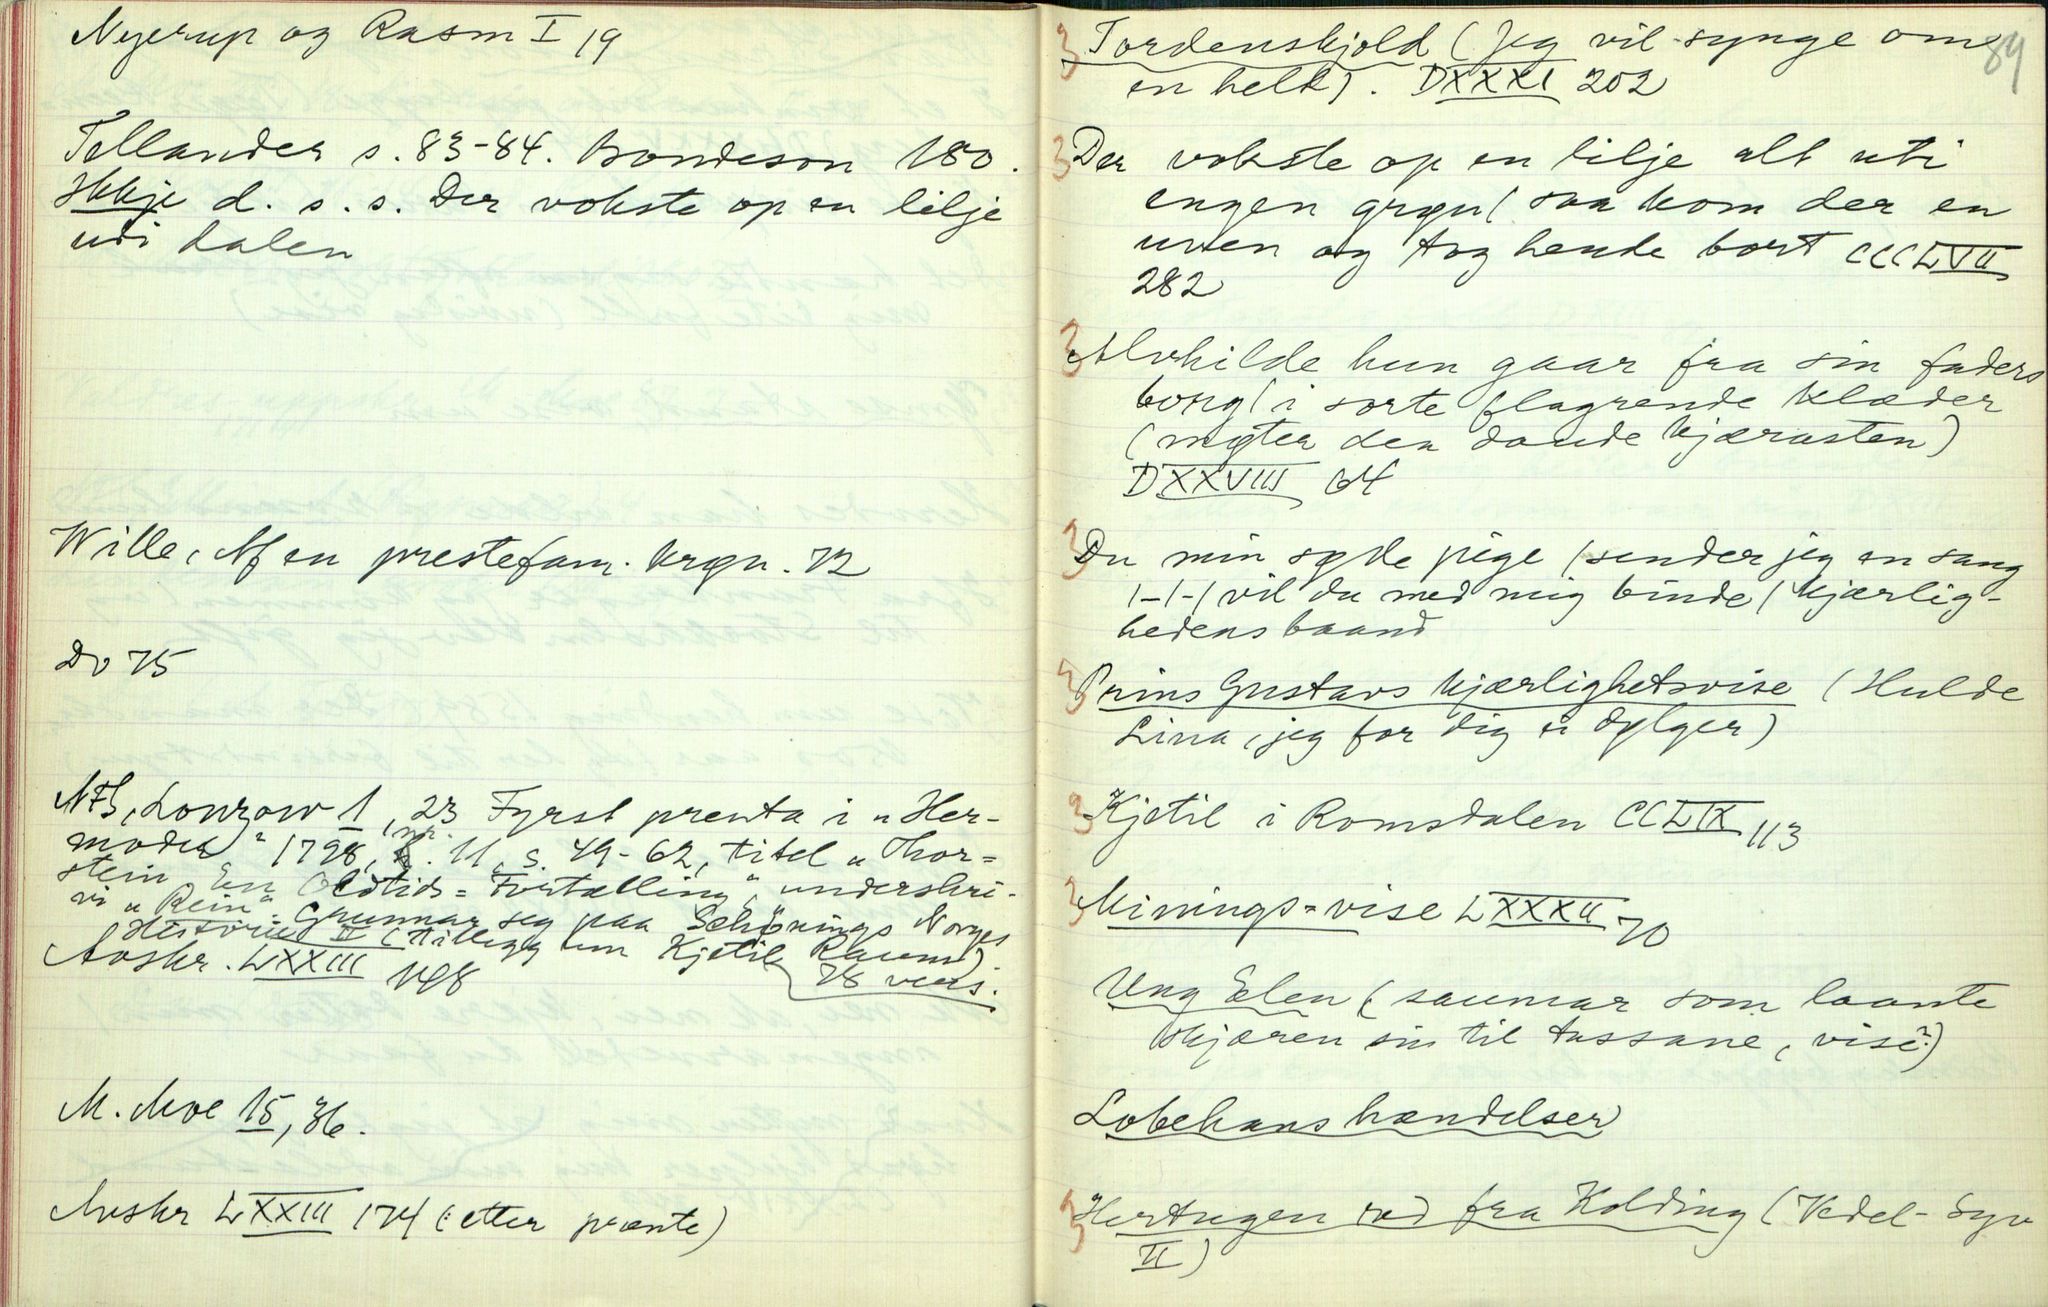 Nyerup og Rasm I 19
Tellander s. 83-84. Bondeson 180.
Ikkje d. s. s. Der vokste op en lilje
udi dalen
Wille, Af en prestefam. krøn. 72
Do 75
NFS, Lonzow 1, 23 Fyrst prenta i "Her-
moder" 1798, nr. 11, s. 49-62, titel "Thor=
stein En Oldtids=Fortælling", underskri-
vi "Rein" Grunnar seg paa Schönings Norges
Historie II (tillegg um Kjetil Raum)
Avskr. LXXIII 148
78 vers.
M. Moe 15, 36.
Avskr LXXIII 174 (: etter prænte)
84
3 Tordenskjold (Jeg vil synge om
en helt). DXXXI 202
3 Der vokste op en lilje alt uti
engen grøn / saa kom der en
uven og tog hende bort CCCLVII
282
3 Alvhilde hun gaar fra sin faders
borg / i sorte flagrende klæder
(møter den daude kjærasten)
DXXVIII 64
3 Du min søde pige / sender jeg en sang
/-/-/ vil du med mig binde / kjærlig-
hedens baand
3 Prins Gustavs kjærlighetsvise (Hulde
Lina, jeg for dig ei dølger)
3 Kjetil i Romsdalen CCLIX 113
3 Minings=vise LXXXII 70
Ung Elen (saumar som laante
skjæren sin til tussane, vise?)
Lobehans hændelser
3 Hertugen red fra Kolding (Vedel-Syv
II)